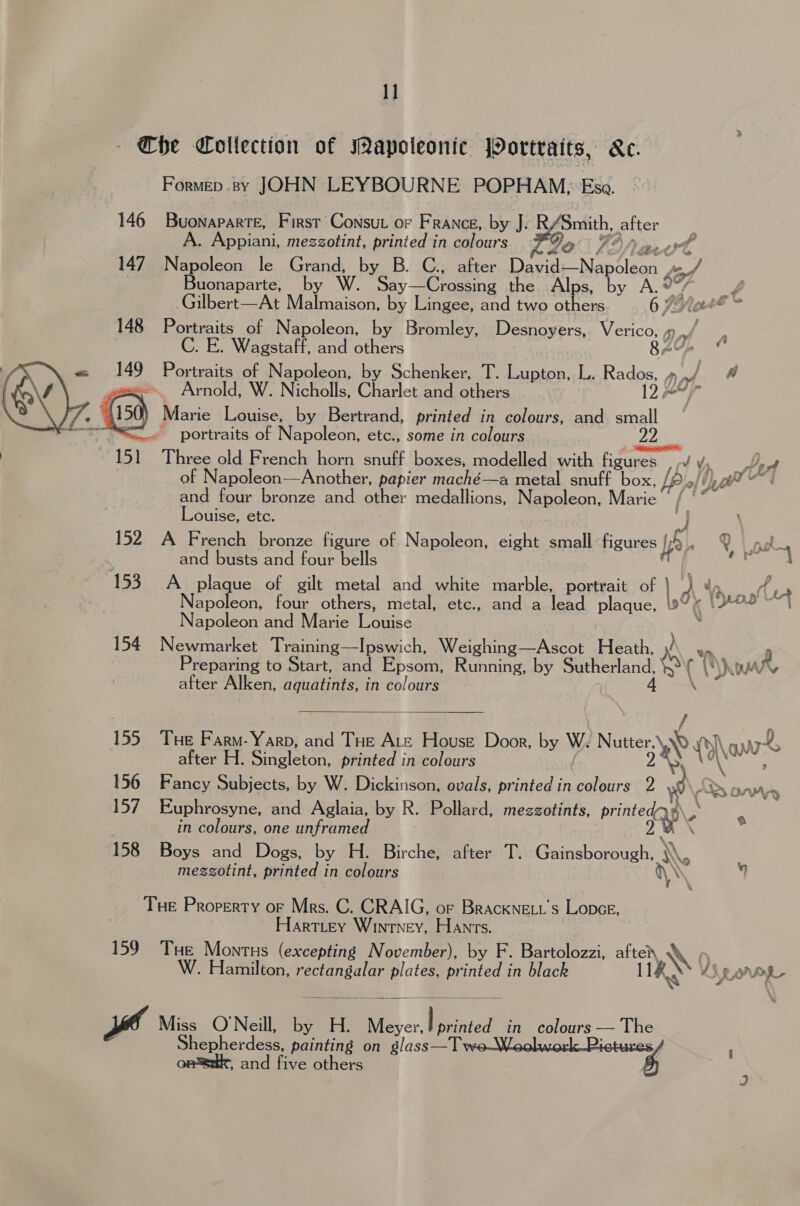 11
The Collection of Napoleonic Portraits, &c.
Formed by JOHN LEYBOURNE POPHAM, Esq.
146 Buonaparte, First Consul of France, by J. R. Smith, after
A. Appiani, mezzotint, printed in colours
147 Napoleon le Grand, by B. C., after David—Napoleon
Buonaparte, by W. Say—Crossing the Alps, by A.
Gilbert—At Malmaison, by Lingee, and two others 6
148 Portraits of Napoleon, by Bromley, Desnoyers, Verico,
C. E. Wagstaff, and others 8
149 Portraits of Napoleon, by Schenker, T. Lupton, L. Rados,
Arnold, W. Nicholls, Charlet and others 12
150 Marie Louise, by Bertrand, printed in colours, and small
portraits of Napoleon, etc., some in colours 22
151 Three old French horn snuff boxes, modelled with figures
of Napoleon—Another, papier maché—a metal snuff box,
and four bronze and other medallions, Napoleon, Marie
Louise, etc.
152 A French bronze figure of Napoleon, eight small figures
and busts and four bells
153 A plaque of gilt metal and white marble, portrait of
Napoleon, four others, metal, etc., and a lead plaque,
Napoleon and Marie Louise
154 Newmarket Training—Ipswich, Weighing—Ascot Heath,
Preparing to Start, and Epsom, Running, by Sutherland,
after Alken, aquatints, in colours 4
155 The Farm-Yard, and The Ale House Door, by W. Nutter,
after H. Singleton, printed in colours 2
156 Fancy Subjects, by W. Dickinson, ovals, printed in colours 2
157 Euphrosyne, and Aglaia, by R. Pollard, mezzotints, printed
in colours, one unframed 2
158 Boys and Dogs, by H. Birche, after T. Gainsborough,
mezzotint, printed in colours
The Property of Mrs. C. CRAIG, of Bracknell's Lodge,
Hartley Wintney, Hants.
159 The Months (excepting November), by F. Bartolozzi, after
W. Hamilton, rectangular plates, printed in black 11
Miss O'Neill, by H. Meyer, printed in colours — The
Shepherdess, painting on glass—Two Woolwork Pictures
on Silk, and five others